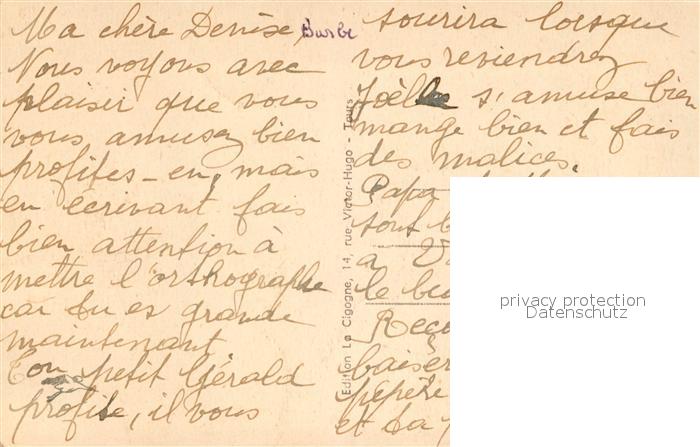 Ma chère Denise Barbe
Nous voyons avec
plaisir que vous
vous amusez bien
profites-en, mais
en écrivant fais
bien attention à
mettre l'orthographe
car tu es grande
maintenant
Ton petit Gérald
profite, il vous
Edition La Cigogne, 14, rue Victor-Hugo - Tours
sourira lorsque
vous reviendrez
Joël s'amuse bien
mange bien et fais
des malices.
Papa
sont b
a V
le bu
Reço
baiser
pépère
et ta
privacy protection
Datenschutz